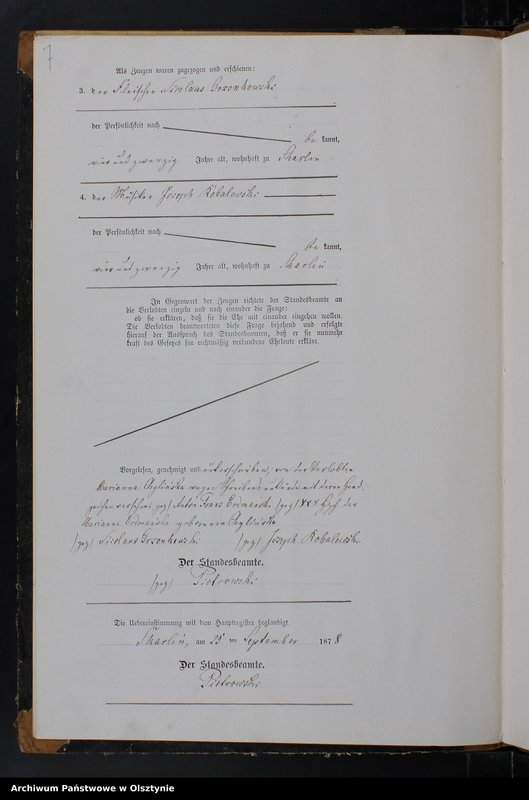 7
Als Zeugen waren zugezogen und erschienen:
3. der Fleischer Nicolaus Orzonkowski
der Persönlichkeit nach
be kannt,
vierundzwanzig Jahre alt, wohnhaft zu Skarlin
4. der Musiker Joseph Kobalewski
der Persönlichkeit nach
be kannt,
vierundzwanzig Jahre alt, wohnhaft zu Skarlin
In Gegenwart der Zeugen richtete der Standesbeamte an
die Verlobten einzeln und nach einander die Frage:
ob sie erklären, daß sie die Ehe mit einander eingehen wollen.
Die Verlobten beantworteten diese Frage bejahend und erfolgte
hierauf der Ausspruch des Standesbeamten, daß er sie nunmehr
kraft des Gesetzes für rechtmäßig verbundene Eheleute erkläre.
Vorgelesen, genehmigt und unterschrieben, von der Verlobten
Marianna wegen Schreibensunkunde mit deren Hand-
zeichen versehen (gez) Anton Franz (gez) +++ der
Marianna geborenen
(gez) Nicolaus Orzonkowski (gez) Joseph Kobalewski
Der Standesbeamte.
(gez) Piotrowski
Die Uebereinstimmung mit dem Hauptregister beglaubigt
Skarlin, am 25 ten September 1878
Der Standesbeamte.
Piotrowski
Archiwum Państwowe w Olsztynie